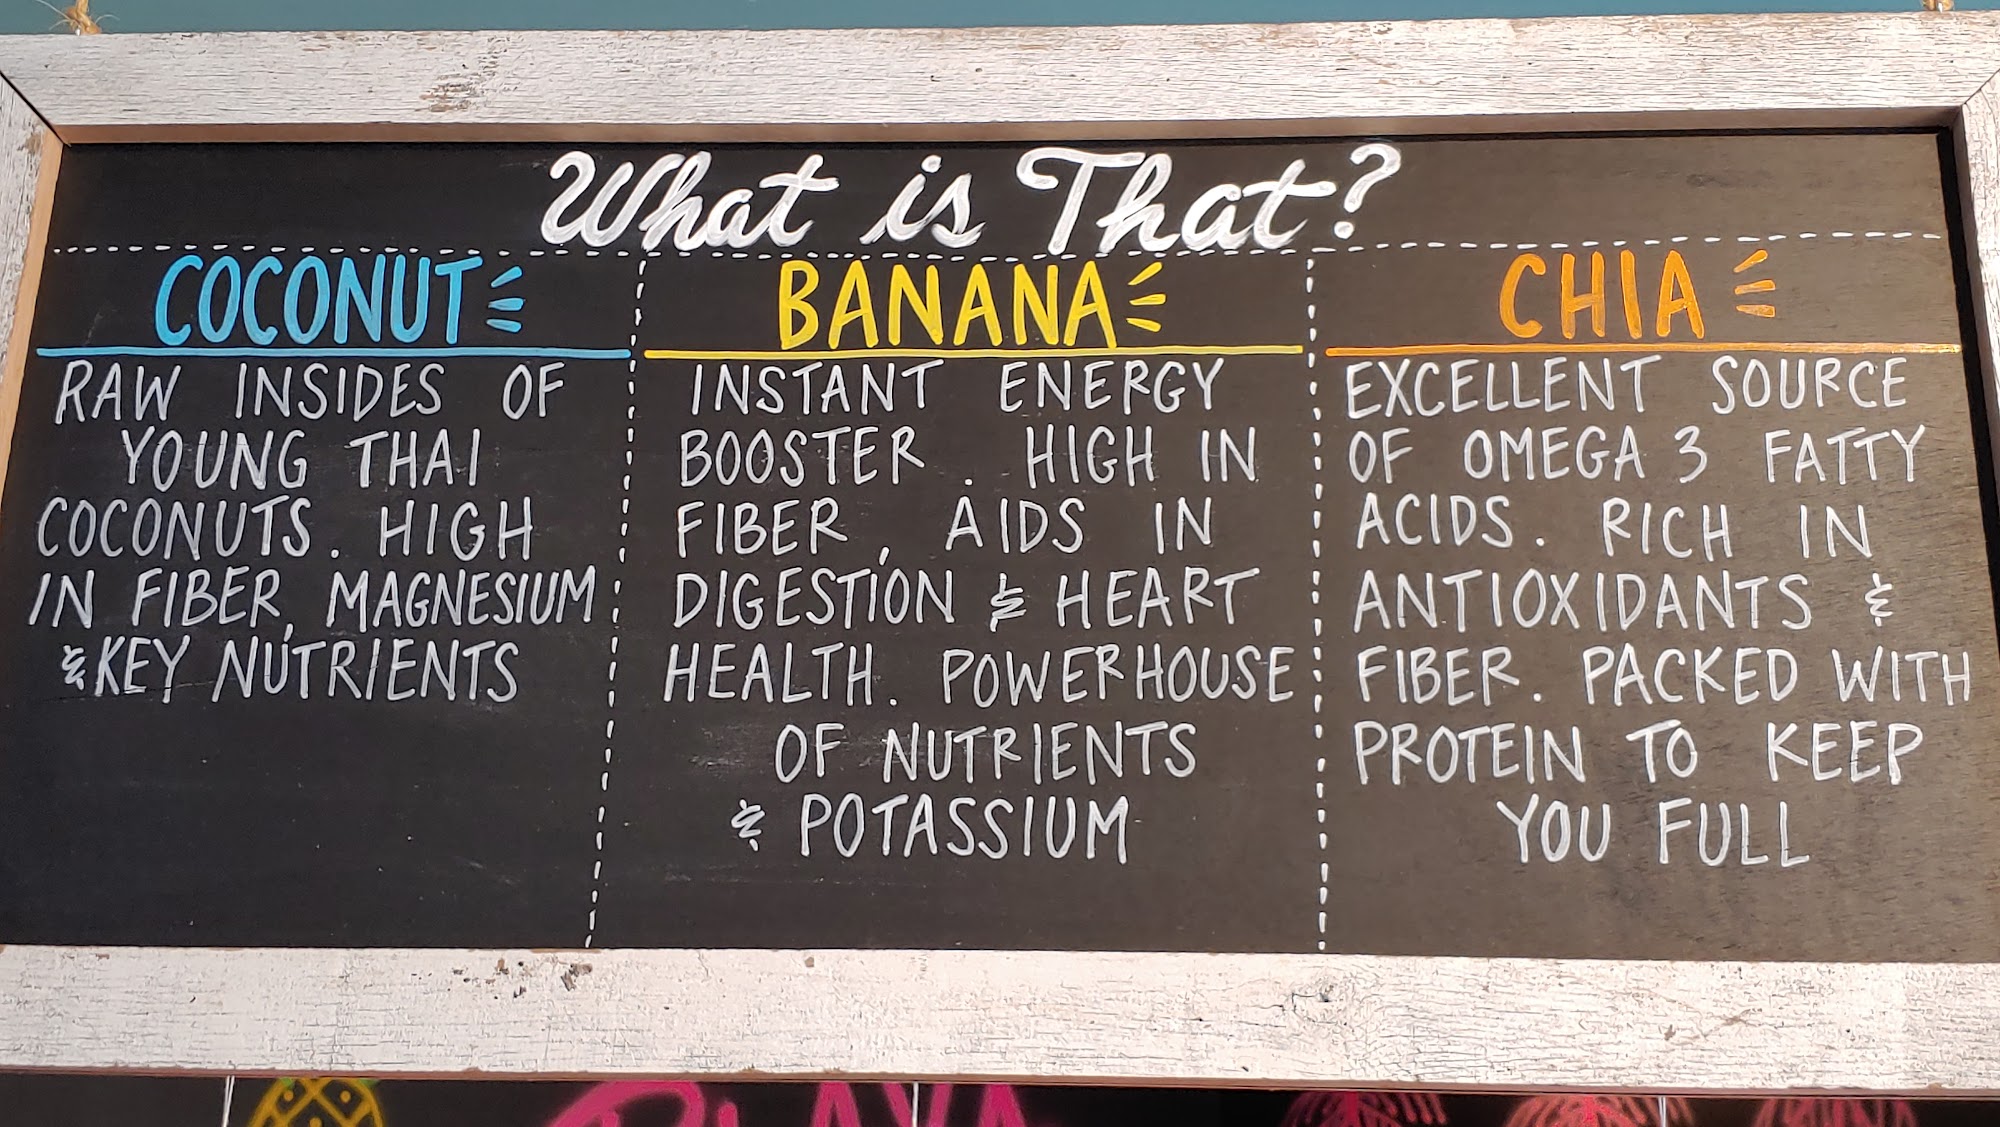 What is That?
COCONUT
RAW INSIDES OF
YOUNG THAI
COCONUTS. HIGH
IN FIBER, MAGNESIUM
& KEY NUTRIENTS
BANANA
INSTANT ENERGY
BOOSTER. HIGH IN
FIBER, AIDS IN
DIGESTION & HEART
HEALTH. POWERHOUSE
OF NUTRIENTS
& POTASSIUM
CHIA
EXCELLENT SOURCE
OF OMEGA 3 FATTY
ACIDS. RICH IN
ANTIOXIDANTS &
FIBER. PACKED WITH
PROTEIN TO KEEP
YOU FULL